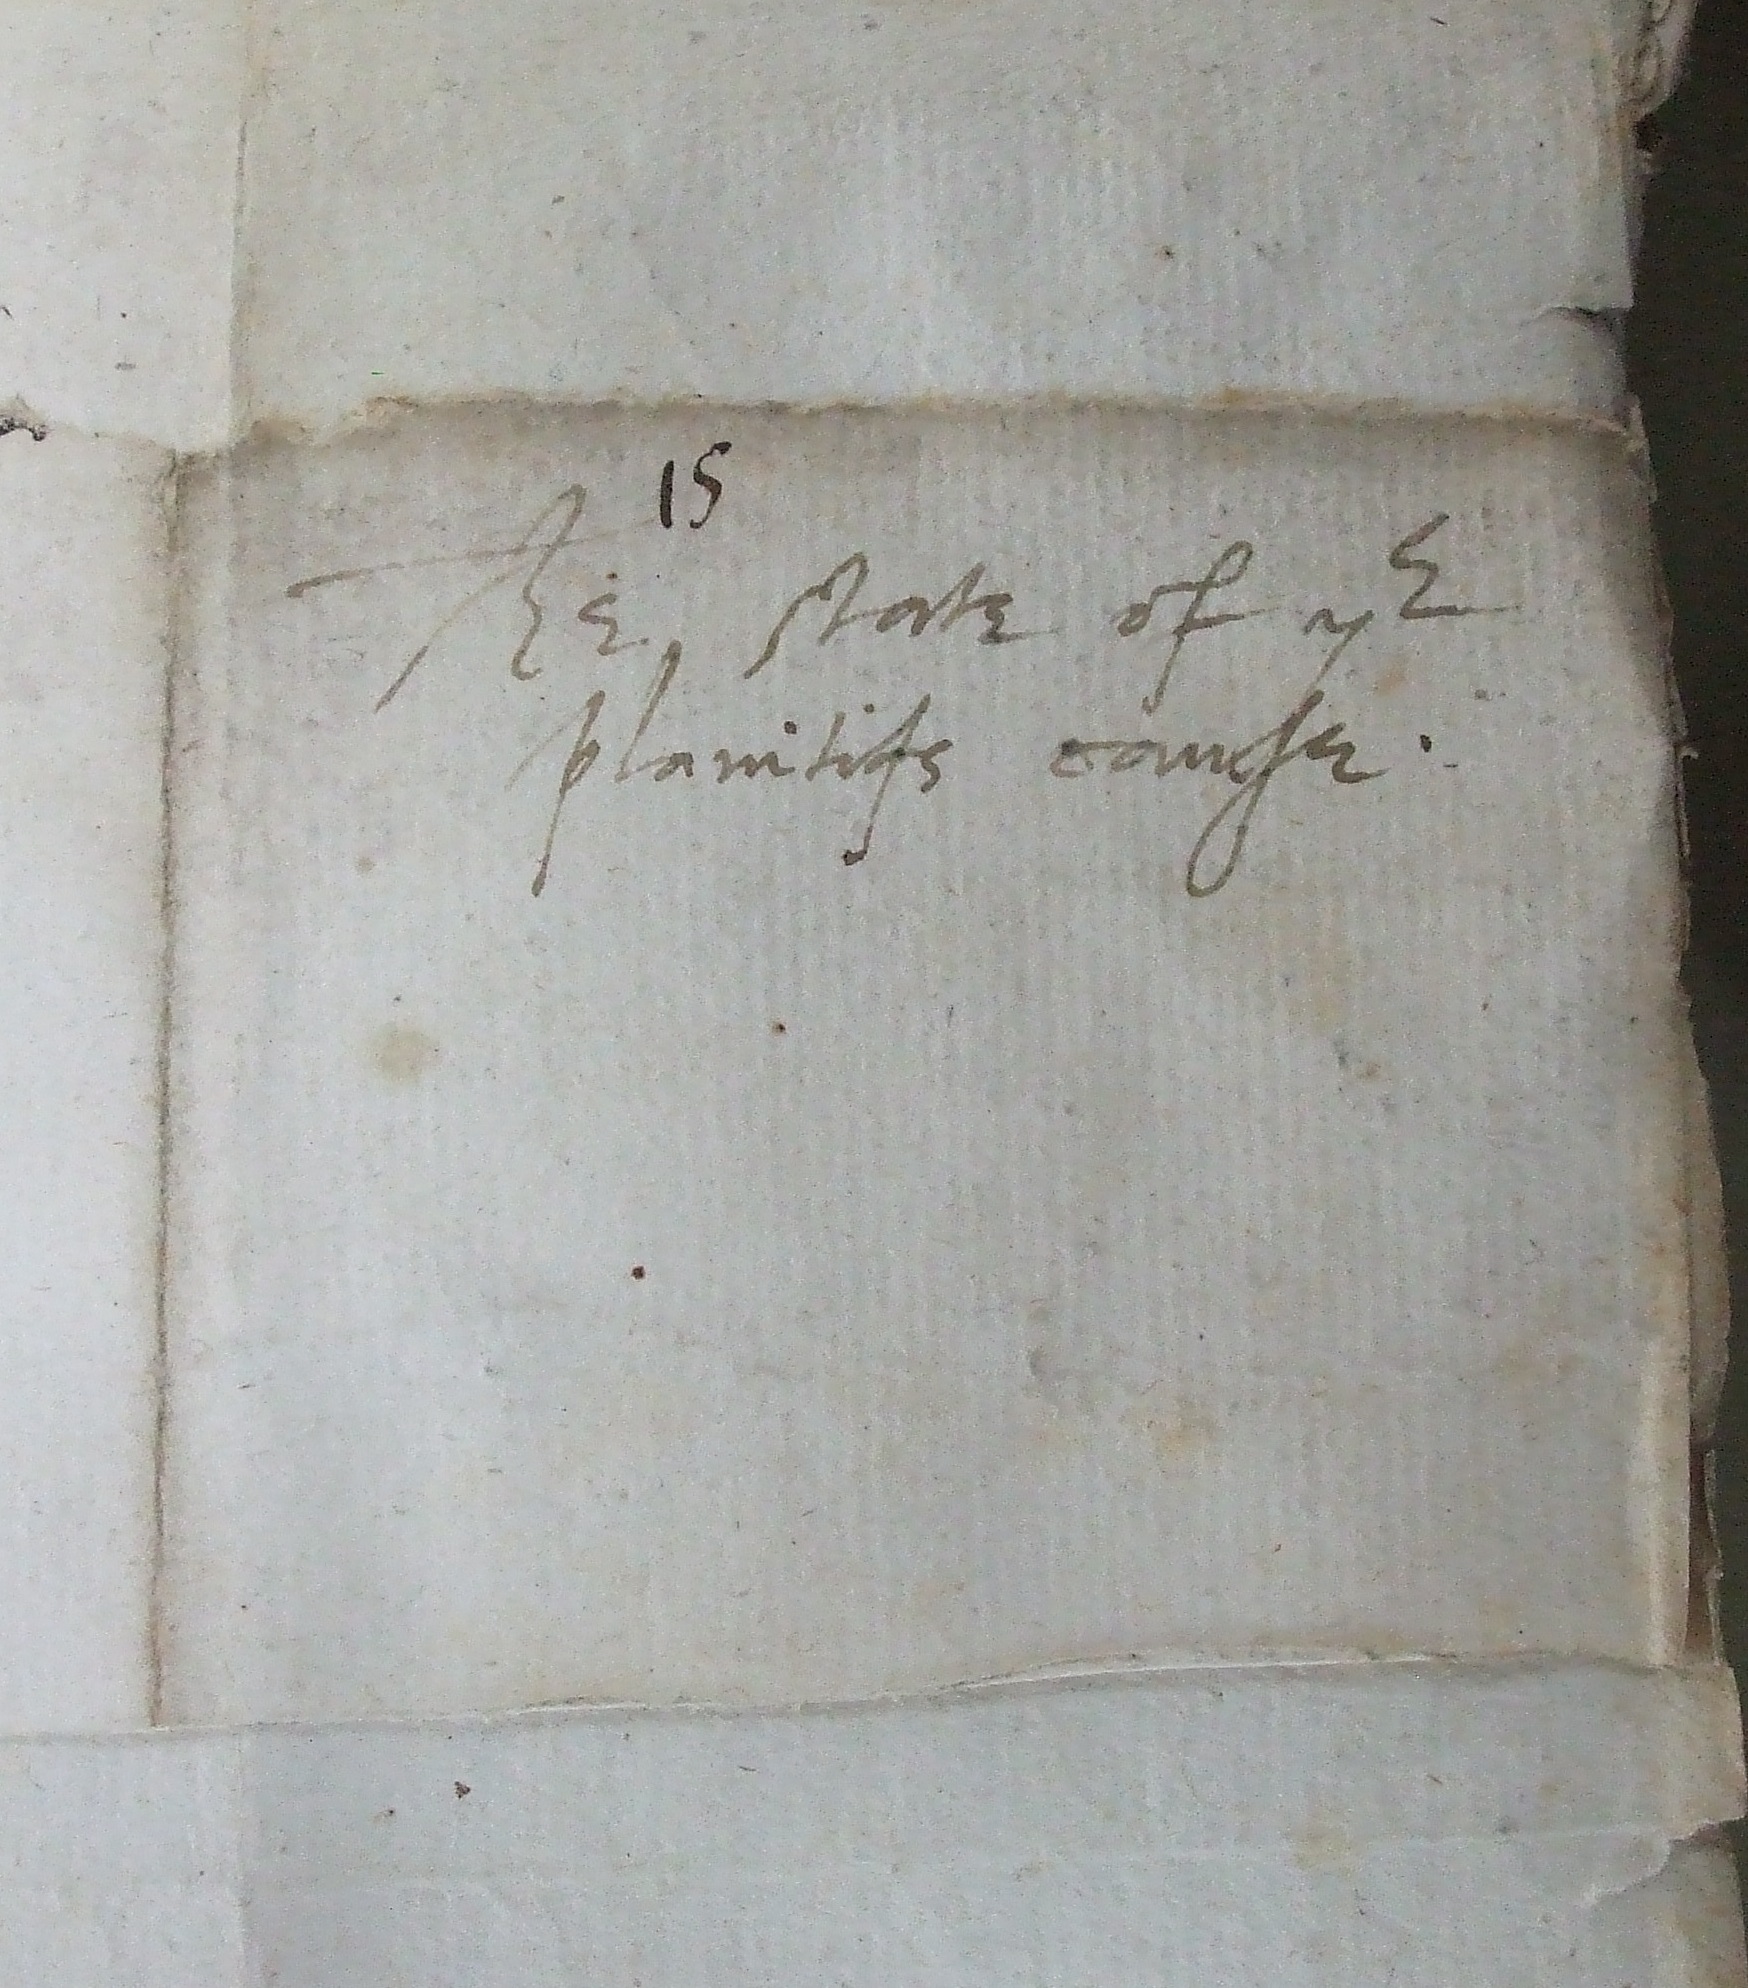 15
The state of yᵉ
planitifs cause.